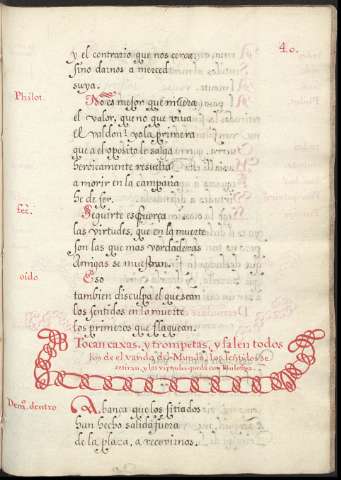 40.
y el contrario que nos cerca,
sino darnos a merced
suya.
Philot.
No es mejor que muera
el valor, que no que viva
el valdon? yo la primera
que a el oposito salga
heroicamente resuelta
a morir en la campaña
he de ser.
feè.
Seguirte es fuerça
las virtudes, que en la muerte
son las que mas verdaderas
Amigas se muestran.
oido.
Eso
tambien disculpa el que sean
los sentidos en la muerte
los primeros que flaquean.
Tocan caxas, y trompetas, y salen todos
los de el vando del Mundo, los sentidos se
retiran, y las virtudes queda con
Demº. dentro
Alarma que los sitiados
han hecho salida fuera
de la plaza, a